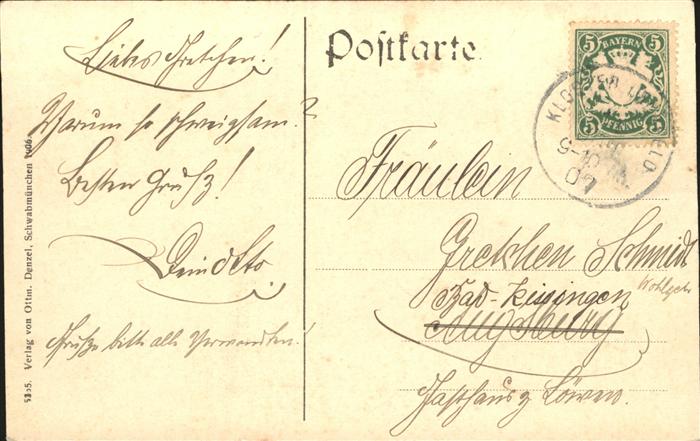 Liebes Gretchen!
Warum so schweigsam?
Besten Gruß!
Dein Otto.
Grüße bitte alle Verwandten!
53:5. Verlag von Ottm. Denzel, Schwabmünchen 1906.
Postkarte.
5 BAYERN 5
5 PFENNIG 5
KLOSTER LE
9-10
09
Fräulein
Gretchen Schmidt
Bad-Kissingen
Augsburg
Gasthaus z Löwen.